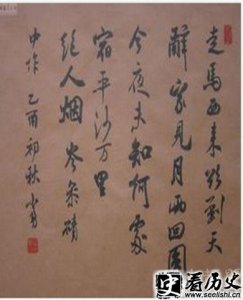 走馬西来欲到天
辭家見月兩回圓
今夜未知何處
宿平沙万里
絕人烟岑參磧
中作 乙酉初秋
看历史